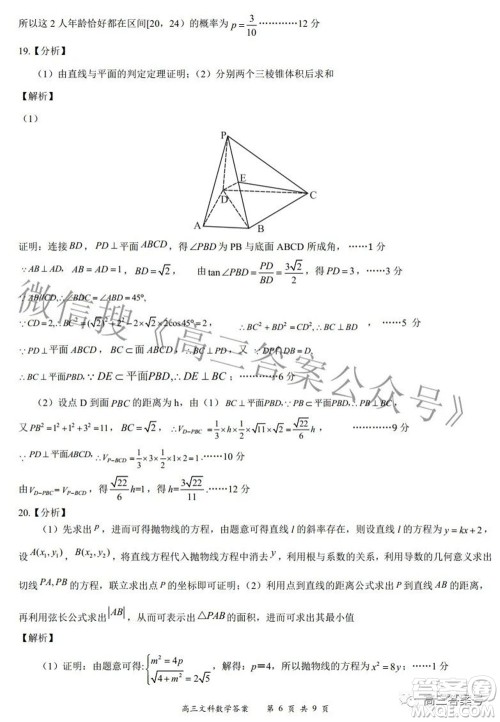 所以这 2 人年龄恰好都在区间[20，24）的概率为 p = 3/10 …………12 分
19.【分析】
（1）由直线与平面的判定定理证明；（2）分别两个三棱锥体积后求和
【解析】
（1）
P
E
D
C
A
B
证明：连接 BD， PD⊥平面 ABCD，得∠PBD 为 PB 与底面 ABCD 所成角， ……1 分
∵AB⊥AD， AB = AD = 1， BD = √2， 由 tan∠PBD = PD/BD = 3√2/2，得 PD = 3，……3 分
∵AB//CD,∴∠BDC = ∠ABD = 45°,
∵CD = 2,∴BC² = (√2)² + 2² − 2×√2×2cos45° = 2， ∴BC² + BD² = CD²， ……5 分
∵PD⊥平面 ABCD， BC⊂平面 ABCD，
∴BC⊥平面PBD,∵DE⊂平面PBD,∴DE⊥BC； ……6 分
（2）设点 D 到面 PBC 的距离为 h，由（1）∵BC⊥平面PBD，∴PB⊥BC，
又∵PB² = 1² + 1² + 3² = 11， BC = √2， ∴V_{D−PBC} = 1/3 h × 1/2 × √11 × √2 = √22/6 h， …………9 分
∵PD⊥平面ABCD，∴V_{P−BCD} = 1/3 × 3 × 1/2 × √2 × √2 = 1
由V_{D−PBC} = V_{P−BCD}，得 √22/6 h=1，得 h = 3√22/11 ……12 分
20.【分析】
（1）先求出 p，进而可得抛物线的方程，由题意可得直线 l 的斜率存在，则设直线 l 的方程为 y = kx + 2，
设 A(x₁,y₁)， B(x₂,y₂)，将直线方程代入抛物线方程中消去 y，利用根与系数的关系，利用导数的几何意义求出
切线 PA,PB 的方程，联立求出点 P 的坐标即可证明；（2）利用点到直线的距离公式求出 P 到直线 AB 的距离，
再利用弦长公式求出 |AB|，从而可表示出 △PAB 的面积，进而可求其最小值
【解析】
（1）证明：由题意可得:{m² = 4p √4 + m² = 2√5，解得：p=4，所以抛物线的方程为 x² = 8y；……1分
高三文科数学答案 第 6 页 共 9 页
微信搜《高三答案公众号》
高三答案号